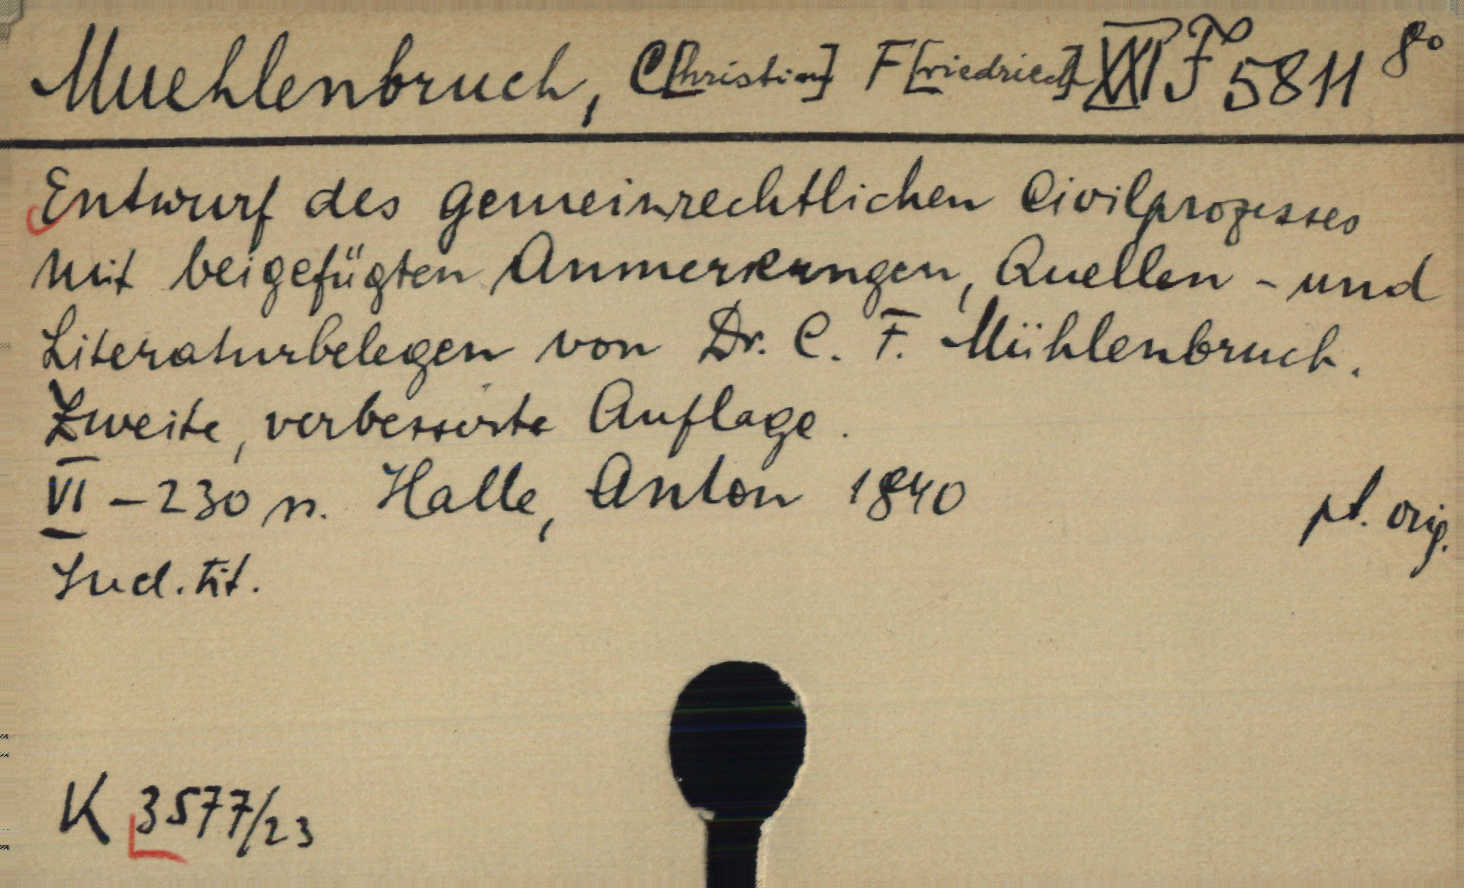 Muehlenbruch, C[hristian] F[riedrich] XXI F 5811 8°
Entwurf des gemeinrechtlichen Civilprozesses
mit beigefügten Anmerkungen, Quellen- und
Literaturbelegen von Dr. C. F. Mühlenbruch.
Zweite, verbesserte Auflage.
VI - 230 p. Halle, Anton 1840
pt. orig.
Ind. tit.
K 3577/23